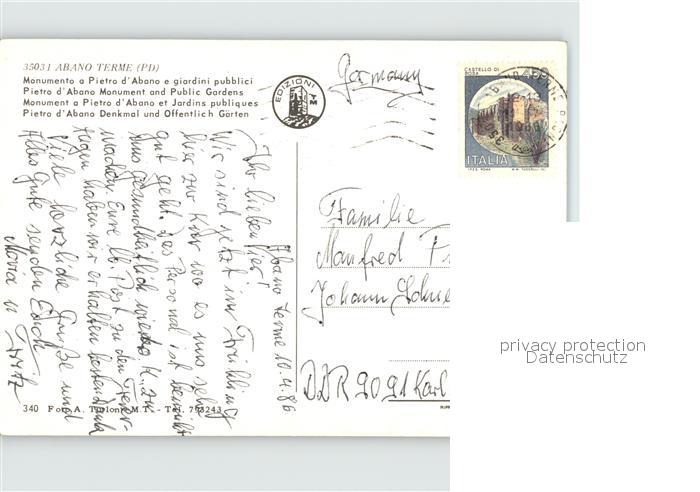 35031 ABANO TERME (PD)
Monumento a Pietro d'Abano e giardini pubblici
Pietro d'Abano Monument and Public Gardens
Monument a Pietro d'Abano et Jardins publiques
Pietro d'Abano Denkmal und Offentlich Gärten
EDIZIONI
MT
Germany
CASTELLO DI
ROSIA
ITALIA
I.P.Z.S. ROMA
Abano Terme 10.4.86
Ihr lieben Vier!
Wir sind jetzt im Frühling
hier zur Kur wo es uns sehr
gut geht. Das Personal ist bemüht
uns gesundheitlich wieder
machen. Eure lb. Post zu den Feier-
tagen haben wir erhalten besten Dank
Viele herzliche Grüße und
alles Gute senden Euch
Maria u.
Familie
Manfred
Johann
DDR 9091 Karl
340 Foto A. M.T. - Tel. 793243
privacy protection
Datenschutz